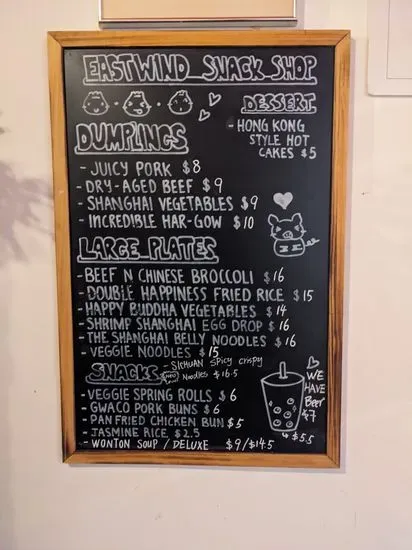 EASTWIND SNACK SHOP
DESSERT
- HONG KONG
STYLE HOT
CAKES $5
DUMPLINGS
- JUICY PORK $8
- DRY-AGED BEEF $9
- SHANGHAI VEGETABLES $9
- INCREDIBLE HAR-GOW $10
LARGE PLATES
- BEEF N CHINESE BROCCOLI $16
- DOUBLE HAPPINESS FRIED RICE $15
- HAPPY BUDDHA VEGETABLES $14
- SHRIMP SHANGHAI EGG DROP $16
- THE SHANGHAI BELLY NOODLES $16
- VEGGIE NOODLES $15
- SICHUAN SPICY CRISPY
Noodles $16.5
SNACKS
- VEGGIE SPRING ROLLS $6
- GWACO PORK BUNS $6
- PAN FRIED CHICKEN BUN $5
- JASMINE RICE $2.5
- WONTON SOUP / DELUXE $9/$14.5
WE
HAVE
Beer
$7
$5.5